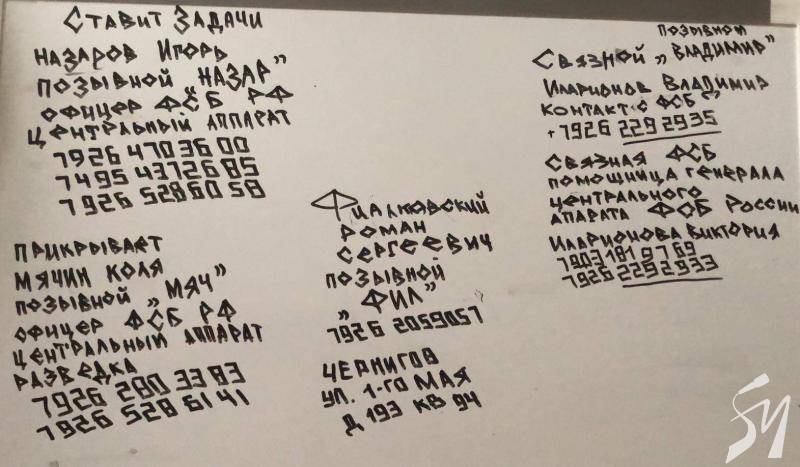 Ставит Задачи
Назаров Игорь
позывной „Назар"
офицер ФСБ РФ
Центральный аппарат
7926 470 36 00
7495 437 26 85
7926 528 60 58
Прикрывает
Мячин Коля
позывной „Мяч"
офицер ФСБ РФ
Центральный аппарат
разведка
7926 280 33 83
7926 528 61 41
Фиалковский
Роман
Сергеевич
позывной
„Фил"
7926 2059057
Чернигов
ул. 1-го Мая
д 193 кв 94
позывной
Связной „Владимир"
Иларионов Владимир
контакт с ФСБ
+7926 229 2935
Связная ФСБ
помощница генерала
центрального
апарата ФСБ России
Иларионова Виктория
7903 181 97 69
7926 2292933